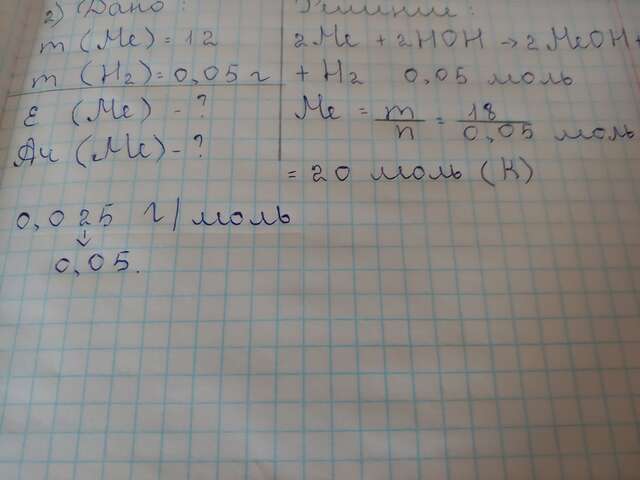 2) Дано:
m (Me) = 12
m (H₂) = 0,05 г
Е (Me) - ?
Ач (Me) - ?
0,025 г/моль
↓
0,05.
Решение:
2Me + 2HOH → 2MeOH +
+ H₂ 0,05 моль
Me = m/n = 18/0,05 моль
= 20 моль (К)